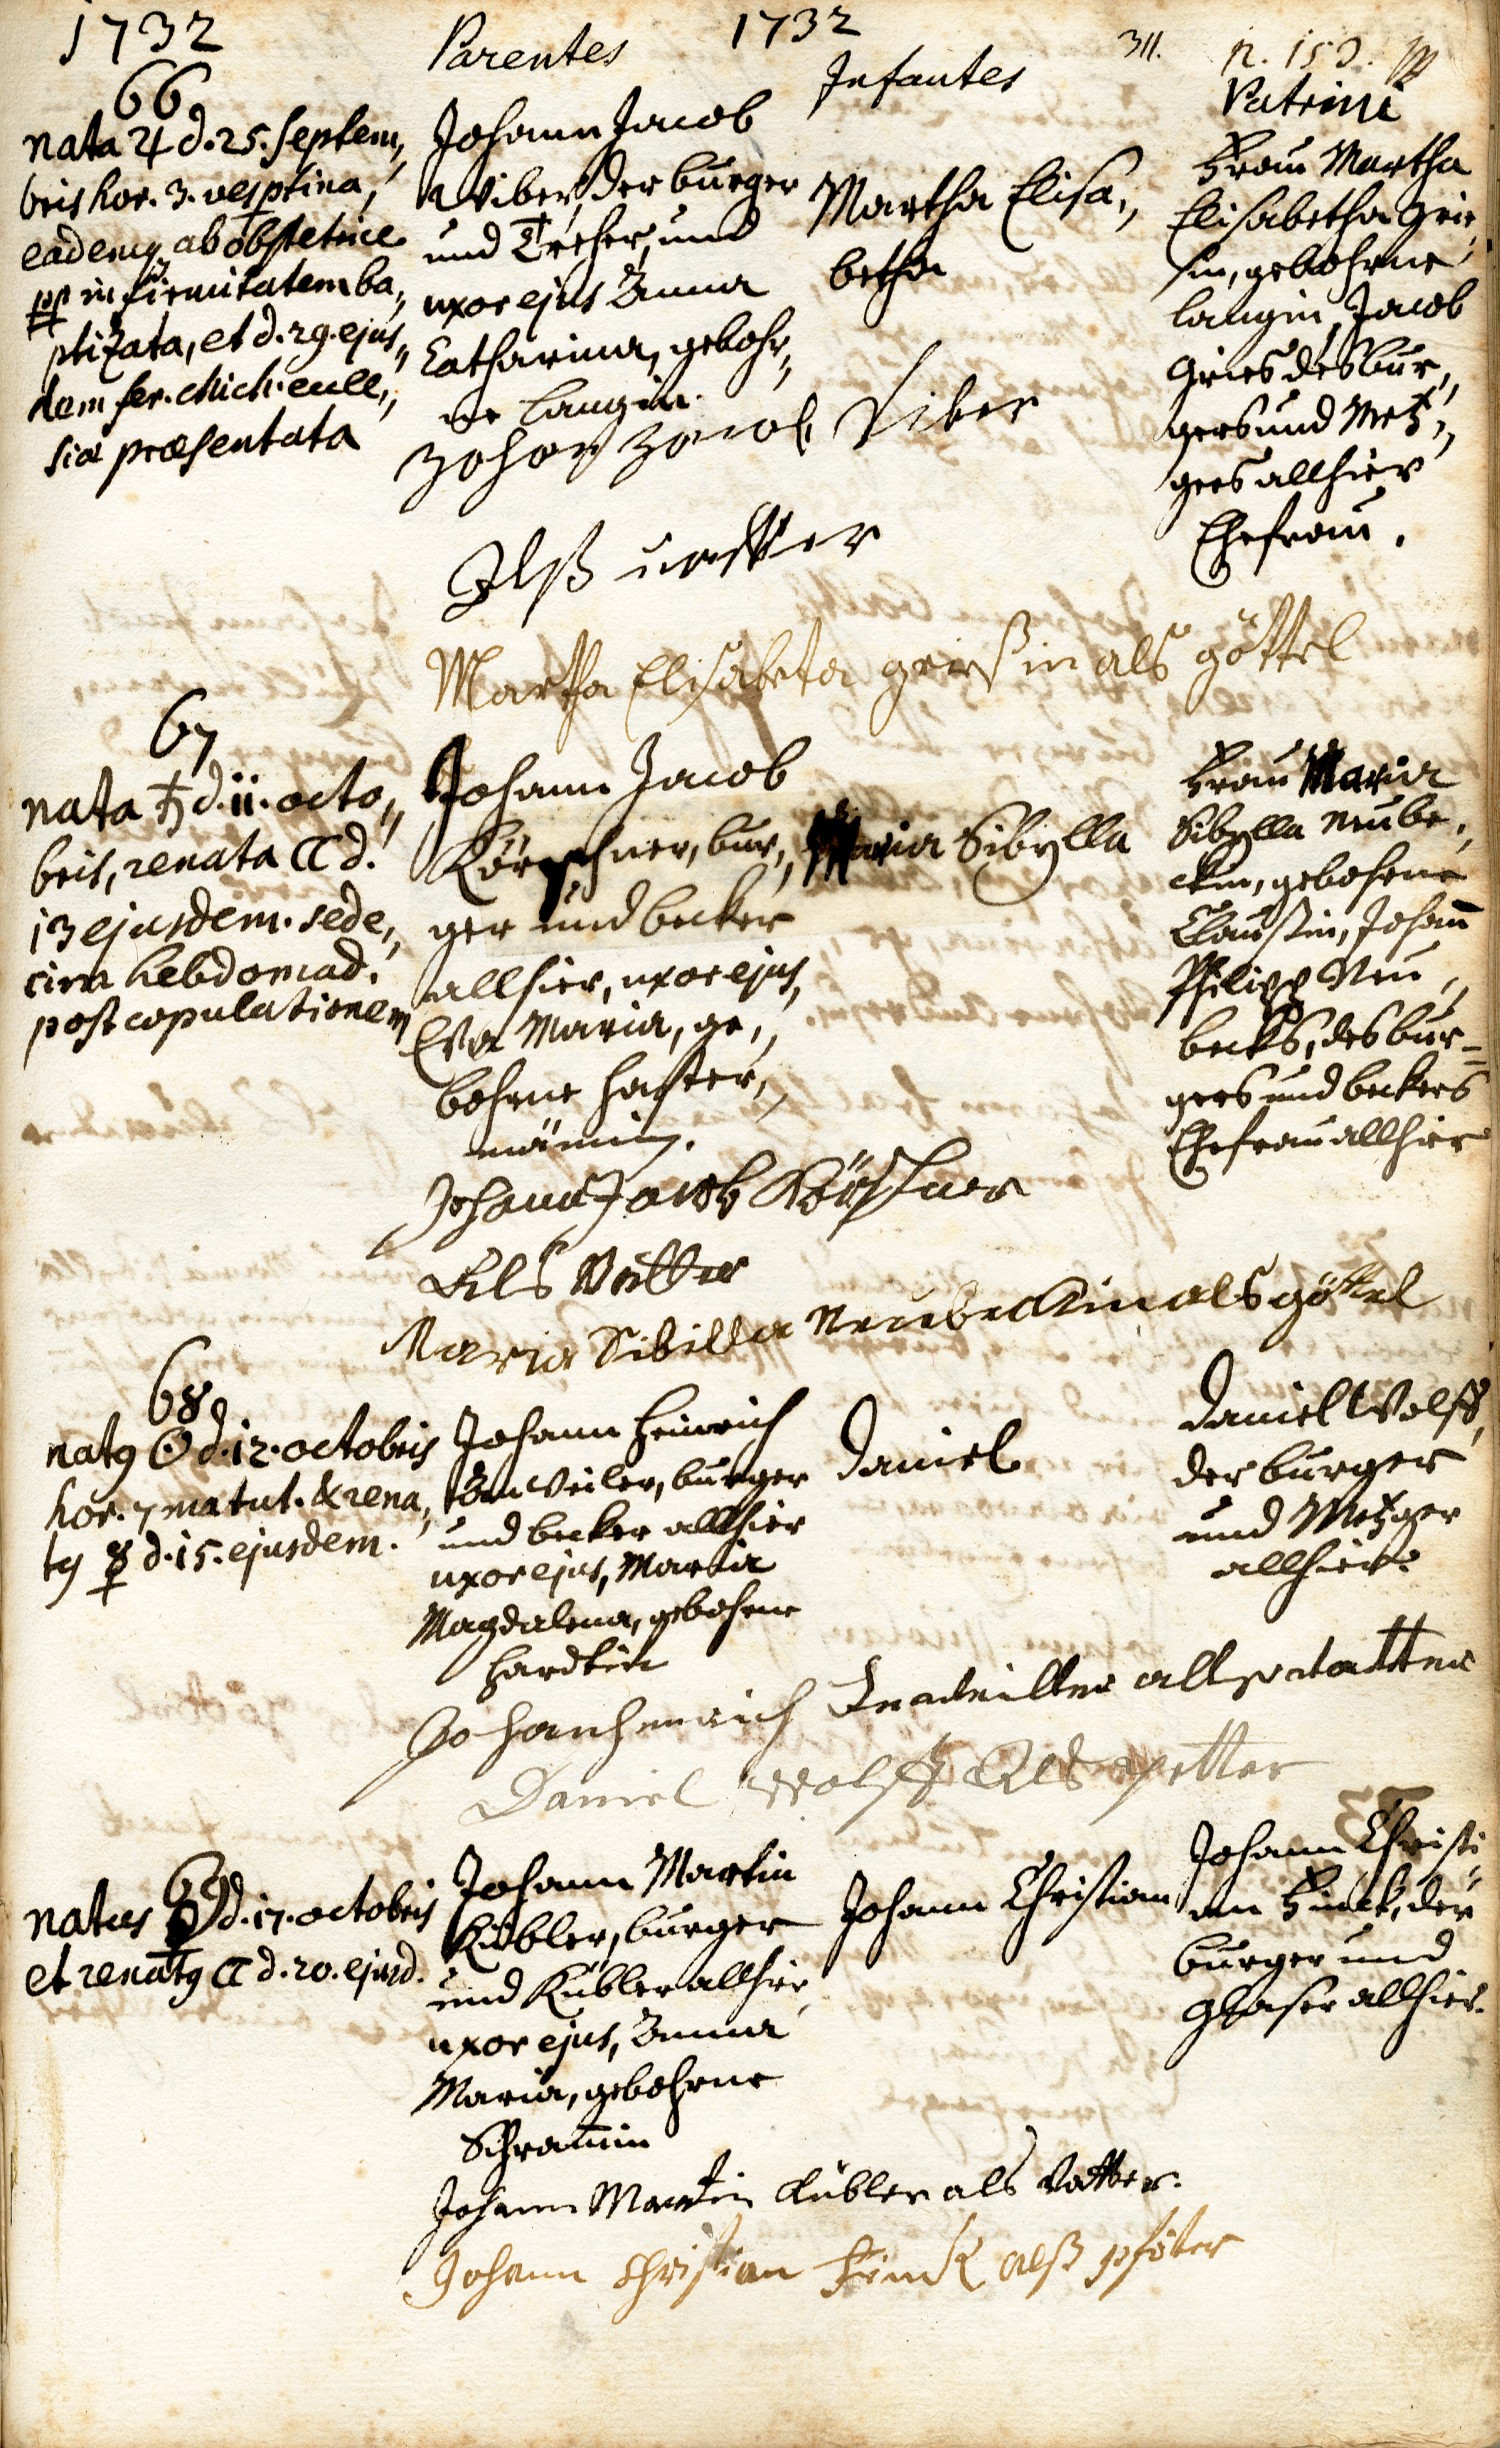 1732
Parentes
1732
Infantes
311.
p. 153.
Patrini
66
nata ♃ d. 25. Septem„
bris hor. 3. vesptina,
eademq ab obstetrice
 pp infirmitatem ba„
ptizata, et d. 29. ejus„
dem fer. Mich. eccle„
siæ præsentata
Johann Jacob
Wiber, der burger
und Treher, und
uxor ejus Anna
Catharina, gebohr„
ne Langin.
Martha Elisa„
betha
Frau Martha
Elisabetha Grie„
sin, gebohrne
Langin, Jacob
Gries des bur„
gers und Metz„
gers allhier
Ehefrau.
Johan Jacob Viber
Alß vatter
Martha Elisabeta grießin als göttel
67
nata ♄ d. 11. octo„
bris, renata ☾ d.
13 ejusdem. sede„
cim hebdomad.
post copulationem
Johann Jacob
Körschner, bur„
ger und becker
allhier, uxor ejus,
Eva Maria, ge„
bohrne Hafter„
männin.
Maria Sibylla
Frau Maria
Sibylla Neube„
ckin, gebohrne
Claußin, Johann
Philipp Neu„
becks, des bur=
gers und beckers
Ehefrau allhier
Johann Jacob Körschner
Als Vatter
Maria Sibilla Neubeckin als göttel
68
natꝯ ☉ d. 12. octobris
hor. 7 matut. & rena„
tꝯ ☿ d. 15. ejusdem.
Johann Heinrich
Anweiler, burger
und becker allhier
uxor ejus, Maria
Magdalena, gebohrne
Hardtin
Daniel
Daniel Wolff,
der burger
und Metzger
allhier.
Johanhenrich Anweiller allß vatter
Daniel Wolff Als petter
69
natus ♀ d. 17. octobris
et renatꝯ ☾ d. 20. ejusd.
Johann Martin
Kübler, burger
und Kübler allhier,
uxor ejus, Anna
Maria, gebohrne
Schramin
Johann Christian
Johann Christi„
an Finck, der
burger und
Glaser allhier.
Johann Martin Kübler als Vatter.
Johann Christian Finck alß pföter